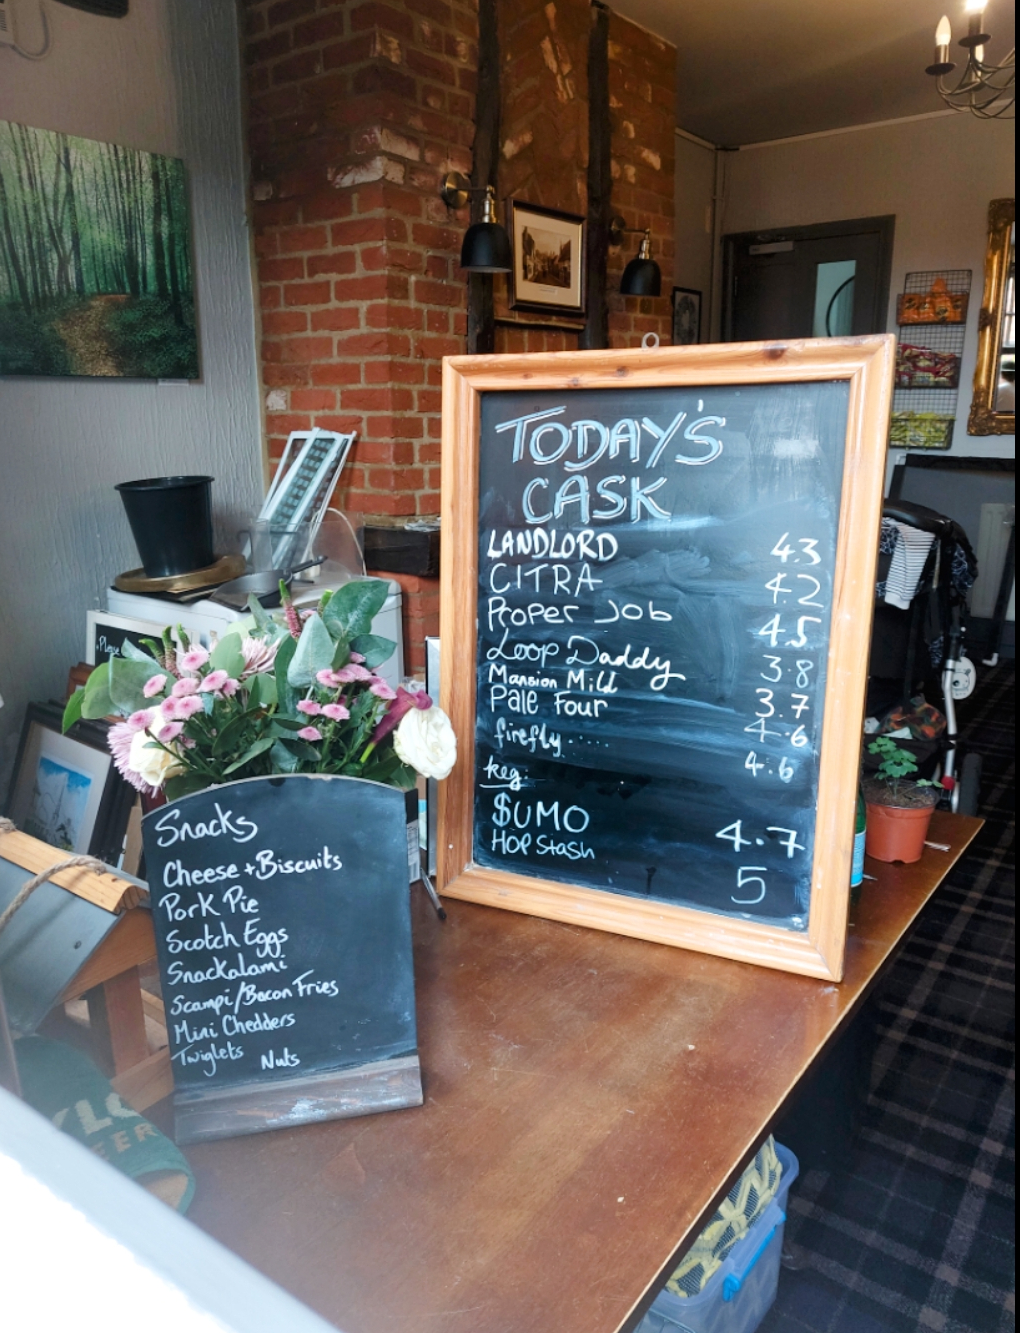 TODAY'S
CASK
LANDLORD 4.3
CITRA 4.2
Proper Job 4.5
Loop Daddy 3.8
Mansion Mild 3.7
Pale Four 4.6
firefly..... 4.6
keg:
$UMO 4.7
HOP Stash 5
Please
Snacks
Cheese + Biscuits
Pork Pie
Scotch Eggs
Snackalami
Scampi/Bacon Fries
Mini Chedders
Twiglets Nuts